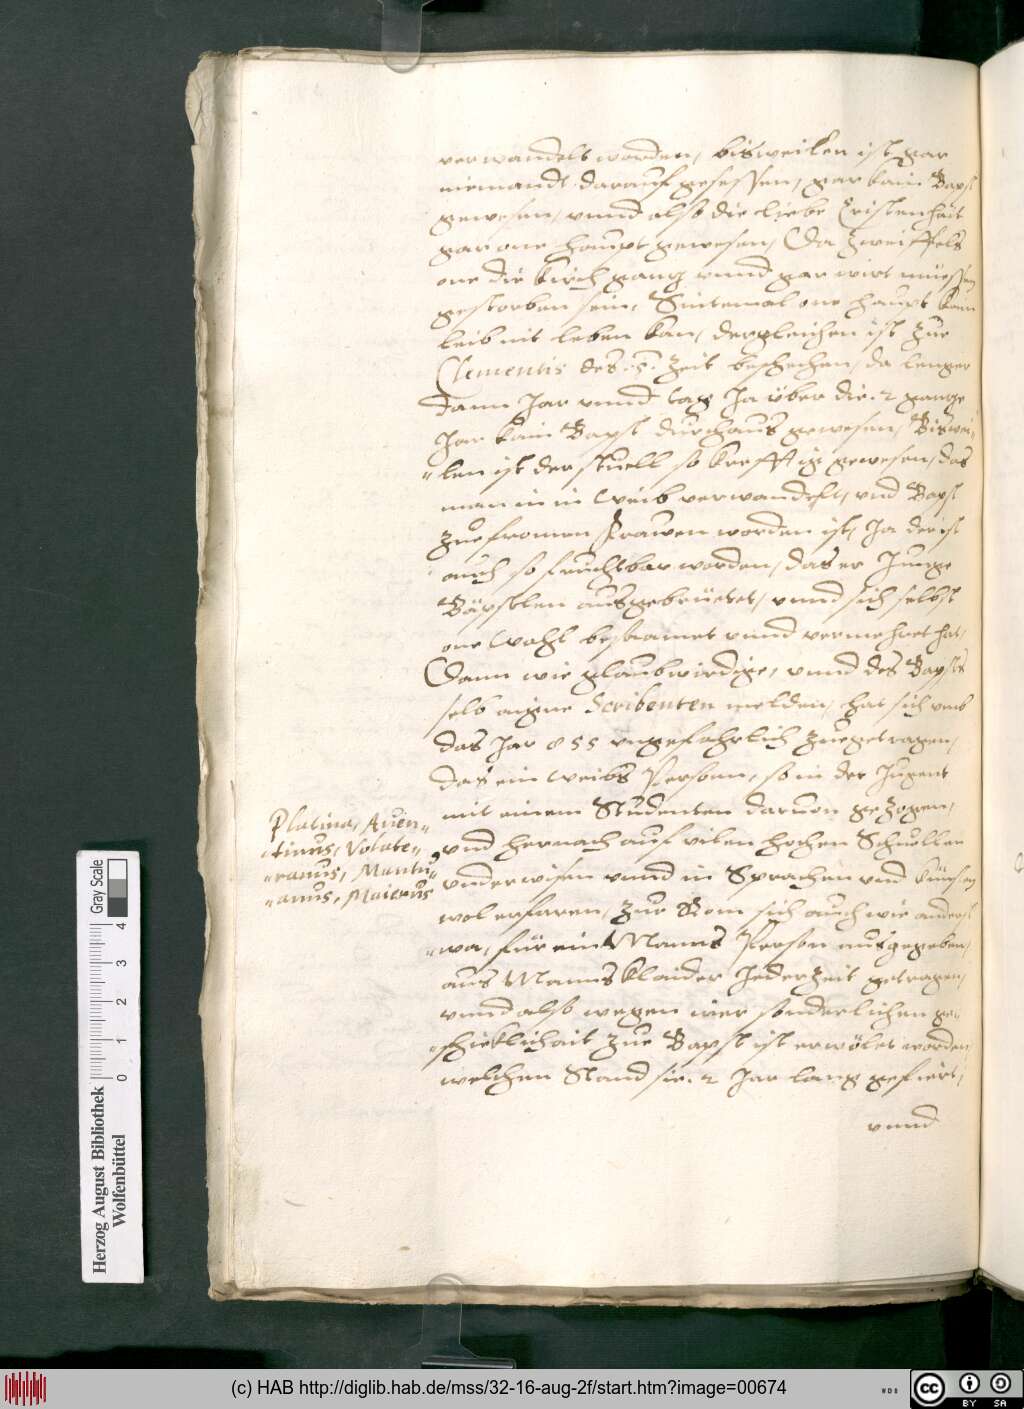 verwandelt worden, bisweilen ist gar
niemandt darauf gesessen, gar kain Bapst
gewesen, vnnd also die liebe Cristenhait
gar one haupt gewesen, Da zweiffels
one die kirch gantz vnnd gar wirt müessen
gestorben sein, Sintemal one haupt kain
leib nit leben kan, dergleichen ist zue
Clementis des .5. zeit beschehen, da lenger
dann Jar vnnd tag Ja über die .2 gantze
Jar kain Bapst durchaus gewesen, Biswei=
=len ist der stuell so krefftig gewesen, das
man in in Weib verwandelt, vnd Bapst
zue fromen Frawen worden ist, Ja der ist
auch so fruchtbar worden, das er Junge
Bäpstlen ausgebrüetet, vnnd sich selbst
one Wahl besaamet vnnd vermehret hat,
Dann wie glaubwirdige, vnnd des Bapsts
selb aigne Scribenten melden, hat sich vmb
das Jar 855 vngefahrlich zuegetragen,
das ein Weibs Person, so in der Jugent
mit einem Studenten daruon gezogen,
vnd hernach auf vilen hohen Schuellen
vnderwisen vnnd in Sprachen vnd künsten
wol erfaren, zue Rom sich auch wie anderst
=wa, für ein Manns Person ausgegeben,
auch Manns klaider Jederzeit getragen,
vnnd also wegen irer sonderlichen ge=
=schicklichait zue Bapst ist erwölet worden,
welchen Stand sie .2 Jar lang gefiert,
vnnd
Platina, Auen=
=tinus, Volate=
=ranus, Mantu=
=anus, Maierus
Gray Scale
0 1 2 3 4
Herzog August Bibliothek
Wolfenbüttel
(c) HAB http://diglib.hab.de/mss/32-16-aug-2f/start.htm?image=00674
WDB
cc BY SA